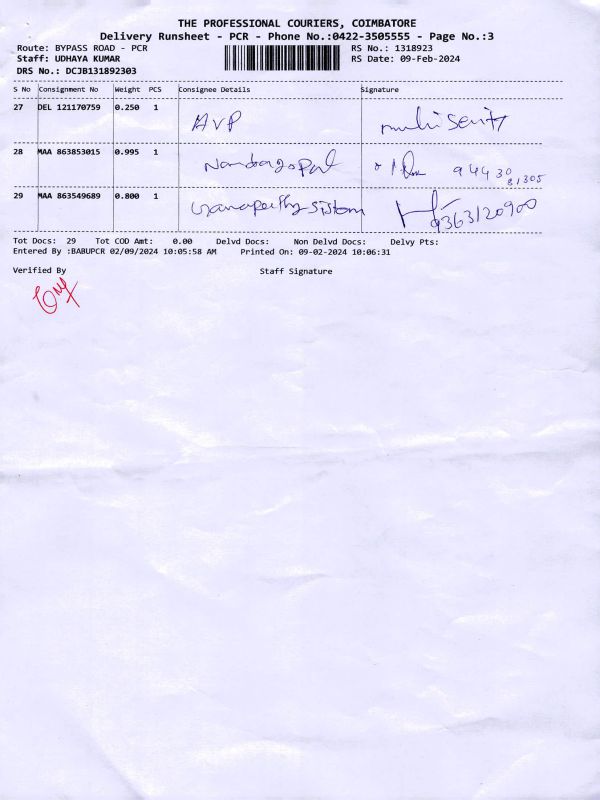 THE PROFESSIONAL COURIERS, COIMBATORE
Delivery Runsheet - PCR - Phone No.:0422-3505555 - Page No.:3
Route: BYPASS ROAD - PCR
RS No.: 1318923
Staff: UDHAYA KUMAR
RS Date: 09-Feb-2024
DRS No.: DCJB131892303
S No Consignment No Weight PCS Consignee Details Signature
27 DEL 121170759 0.250 1 AVP
28 MAA 863853015 0.995 1 Nandagopal 94430
81305
29 MAA 863549689 0.800 1 Ganapathy sistom 9363120900
Tot Docs: 29 Tot COD Amt: 0.00 Delvd Docs: Non Delvd Docs: Delvy Pts:
Entered By :BABUPCR 02/09/2024 10:05:58 AM Printed On: 09-02-2024 10:06:31
Verified By Staff Signature